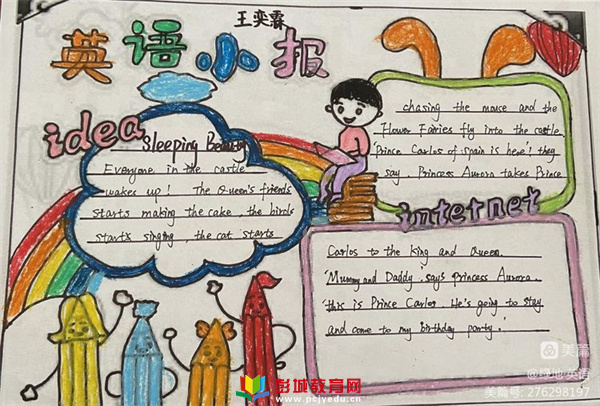 王奕霖
英语小报
idea
Sleeping Beauty
Everyone in the castle
wakes up! The Queen's friends
starts making the cake, the birds
starts singing, the cat starts
chasing the mouse and the
Flower Fairies fly into the castle
'Prince Carlos of Spain is here!' they
say. Princess Aurora takes Prince
internet
Carlos to the king and Queen.
'Mummy and Daddy', says Princess Aurora.
'this is Prince Carlos. He's going to stay
and come to my birthday party.'
美篇
@绿地英语
美篇号: 276298197
彭城教育网
www.pcjyedu.cn